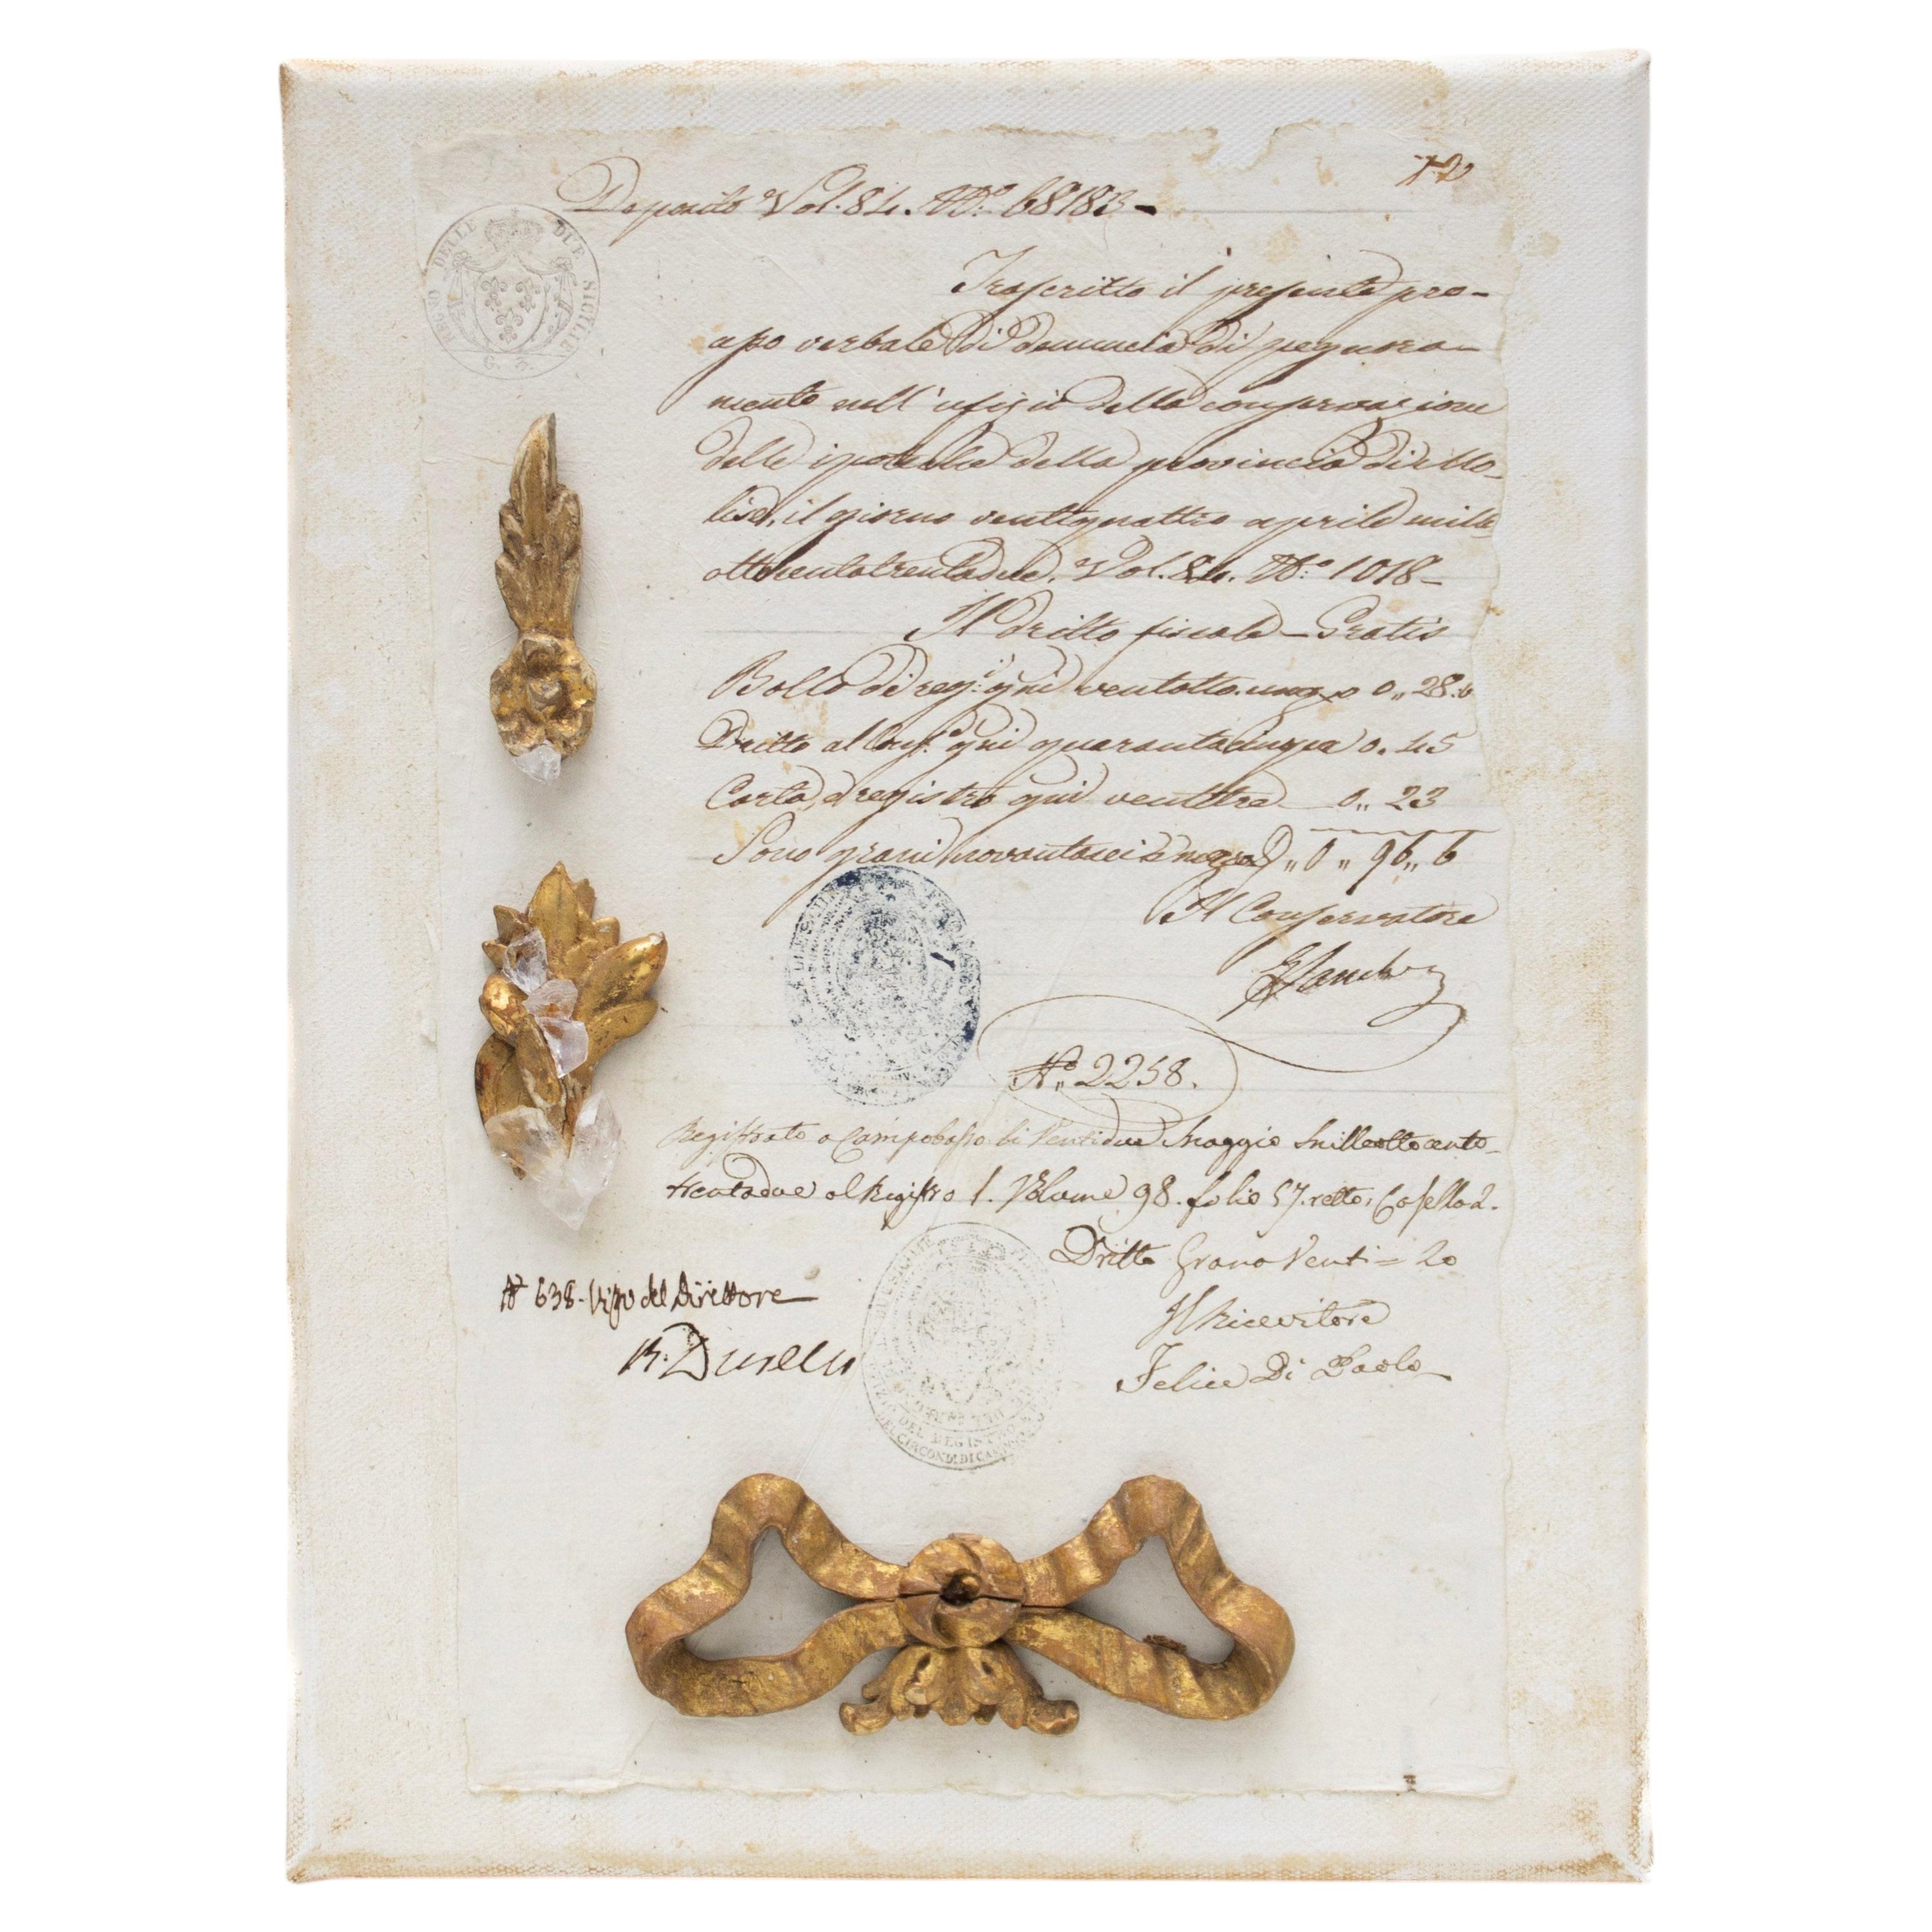 Deposito Vol. 84. N.º 68183 -
REGNO DELLE DUE SICILIE
Trascritto il presente pro-
cesso verbale di denuncia di pegnora-
mento nell'ufizio della conservazione
delle ipoteche della provincia di Mo-
lise, il giorno ventiquattro aprile mille
ottocentotrentadue. Vol. 84. N.º 1018 -
Il dritto fiscale - Gratis
Bollo di reg. gni ventotto 0,, 28.
Dritto al Cons. gni quarantacinque 0. 45
Carta, e registro gni ventitre 0,, 23
Sono grani novantasei e mezzo D,, 0,, 96,, 6
Il Conservatore
Nº 2258.
Registrato a Campobasso li Ventidue Maggio Milleottocento-
trentadue al Registro 1. Volume 98. folio 57. retto, Casella 2.
Dritto Grana Venti = 20
Il Ricevitore
Felice Di Paolo
Nº 638. Visto del Direttore
DEL REGISTRO